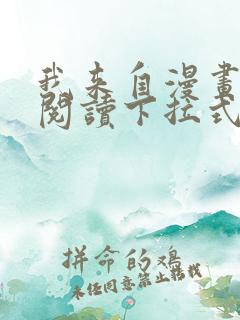 我来自漫畫
閱讀下拉式
拼命的鸡
未经同意禁止转载